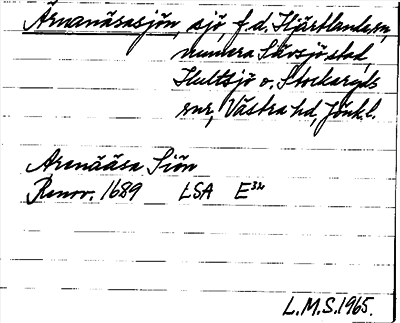 Årnanäsasjön, sjö f.d. Hjärtlanda sn,
numera Sävsjö stad,
Hultsjö o. Stockaryds
snr, Västra hd, Jönk. l.
Arenääsa Siön
Renov. 1689 LSA E32
L.M.S. 1965.